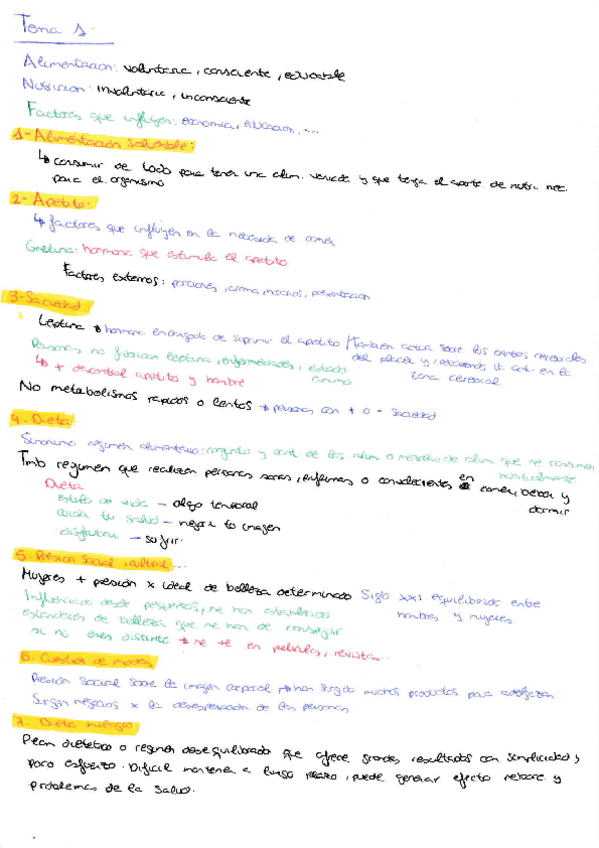 Tema 1.
Alimentacion: voluntaria, consciente, educable
Nutricion: Involuntaria, inconsciente
Factores que influyen: economia, educacion, ...
1- Alimentación Saludable:
↳ consumir de todo para tener una alim. variada y que tenga el aporte de nutri. nec.
para el organismo
2- Apetito.
↳ factores que influyen en la necesidad de comer
Grelina: hormona que estimula el apetito
Factores externos: porciones, aroma, presentacion
3- Saciedad:
Leptina → hormona encargada de suprimir el apetito / También actua sobre los centros cerebrales
del placer y
zona cerebral
Personas no fabrican leptina, enfermedades, estados
animo
↳ + descontrol apetito y hambre
No metabolismos rapidos o lentos → personas con + o - saciedad
4- Dieta
Sinonimo regimen alimenticio: conjunto y cant de los alim o mezclas de alim que se consumen
habitualmente
Tmb regimen que realizan personas sanas, enfermas o convalecientes en comer, beber y
dormir
Dieta
estilo de vida - algo temporal
cuida tu salud - mejora tu imagen
disfrutar - sufrir.
5. Presion Social, cultural...
Mujeres + presión x ideal de belleza determinado Siglo XXI equilibrado entre
hombres y mujeres.
Influenciados desde pequeños, se han establecido
estandares de belleza que se han de conseguir
si no eres distinto → se ve en peliculas, revistas...
6. Cuestion de modas
Presion social sobre la imagen corporal → han surgido muchos productos para satisfacer
Surgen negocios x la desesperación de las personas
7. Dieta milagro
Plan dietetico o regimen desequilibrado que ofrece grandes resultados con simplicidad y
poco esfuerzo. Dificil mantener a largo plazo, puede generar efecto rebote y
problemas de la salud.